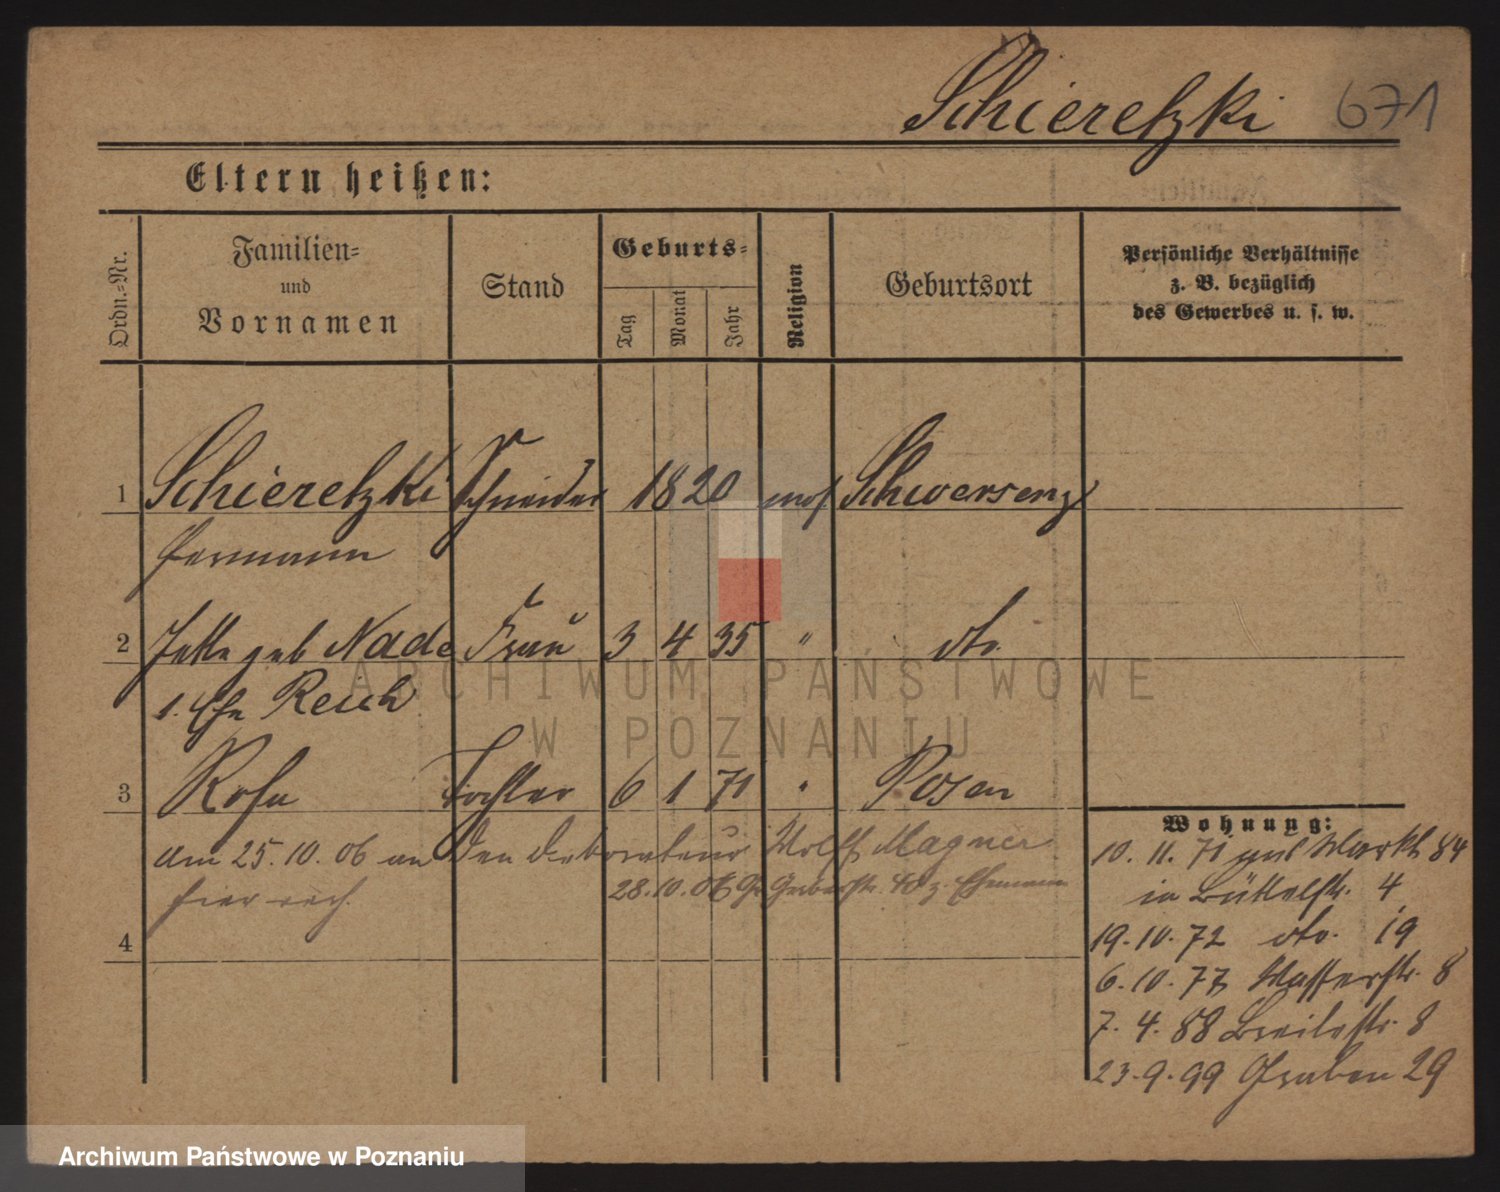 Schieretzki 671
Eltern heißen:
Ordn.-Nr.
Familien-
und
Vornamen
Stand
Geburts-
Tag
Monat
Jahr
Religion
Geburtsort
Persönliche Verhältnisse
z. B. bezüglich
des Gewerbes u. s. w.
1 Schieretzki Schneider 1820 mos. Schwersenz
Hermann
2 Jette geb Nade Frau 3 4 35 " dto.
1. Ehe Reich
3 Rosa Tochter 6 1 71 " Posen
am 25.10.06 an den Dekorateur Wolff Magner
hier
28.10.06 Gr Gerberstr. 40 z. Ehemann
4
Wohnung:
10. 11. 71 Markt 84
in Büttelstr. 4
19.10.72 dto. 19
6.10.77 Wasserstr. 8
7.4.88 Breitestr. 8
23.9.99 Graben 29
ARCHIWUM PAŃSTWOWE
W POZNANIU
Archiwum Państwowe w Poznaniu